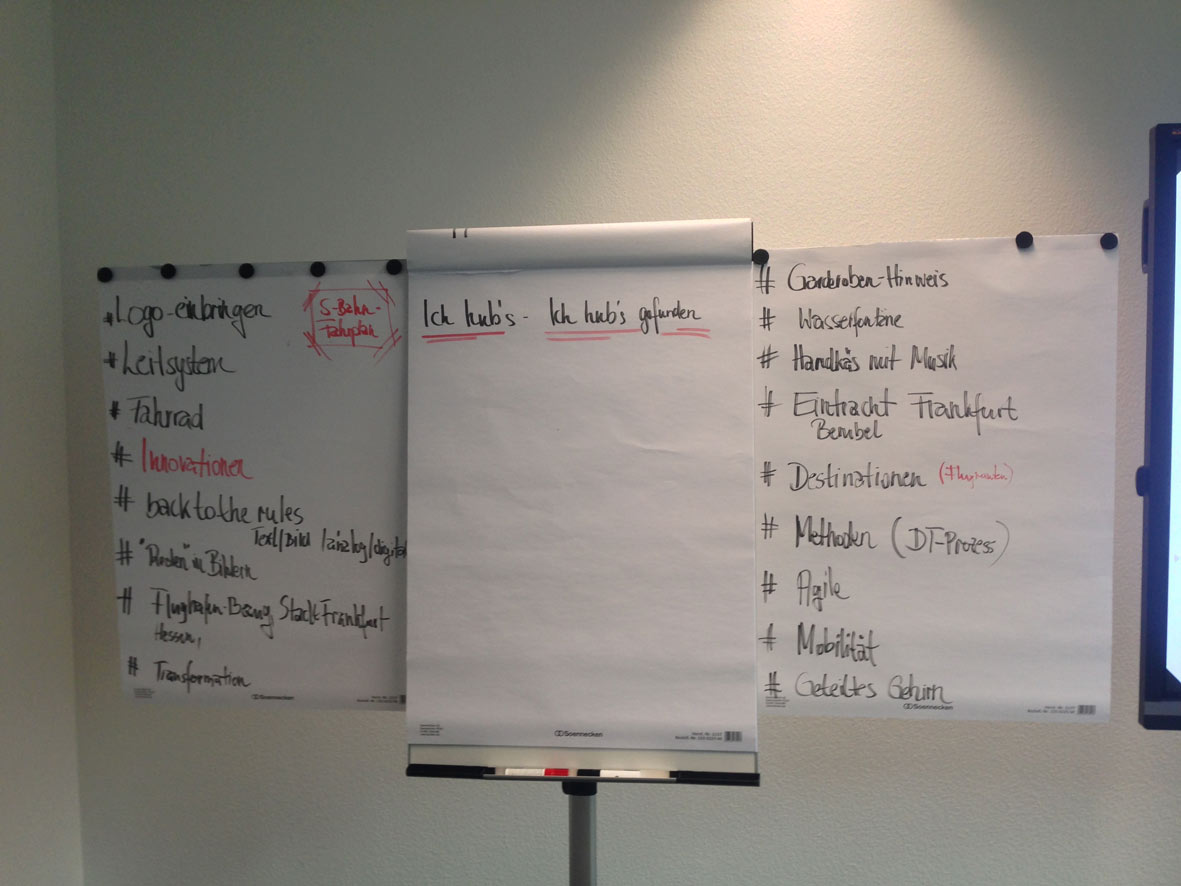 # Logo-einbringen
S-Bahn-
Fahrplan
# Leitsystem
# Fahrrad
# Innovationen
# back to the rules
Text/Bild /analog/digital
# in Bildern
# Flughafen-Bezug, Stadt Frankfurt
Hessen,
# Transformation
Soennecken
Ich hub's - Ich hub's gefunden
Soennecken
# Garderoben-Hinweis
# Wasserfontäne
# Handkäs mit Musik
# Eintracht Frankfurt
Bembel
# Destinationen (Flugrouten)
# Methoden (DT-Prozess)
# Agile
# Mobilität
# Geteiltes Gehirn
Soennecken